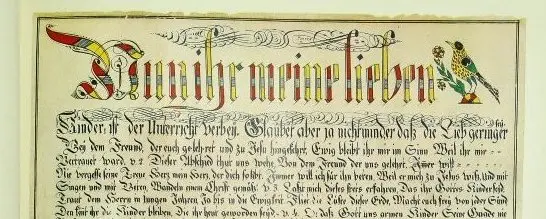 Nun ihr meine lieben
Kinder, ist der Unterricht verbey. Glaubet aber ja nicht minger daß die Lieb geringer sey.
Bey dem Freund, der euch gelehret und zu Jesu hingekehrt, Ewig bleibt ihr mir im Sinn Weil ihr mir
Vertrauet ward. v. 2. Dieser Abschied thut uns weh, Von dem Freund der uns gelehrt. Jmer will
Nie vergeß ich eine Treu Herz mein Herz, der dich Jmer will ich für ihn beten. Weil er mich zu Jesu weißt. Und mit
Singen und mit Beten, Wandeln mein Christ gemäß. v. 3. Laßt mich dieses freis erfahren. Das ihr Gottes Kinder seid.
Traut dem Herren in jungen Jahren Ja bis in die Ewigkeit. Jhr die Lüste dieser Erde, Macht euch frey von jeder Sünd
Den für die Kinder bleiben, Die ihr heut geworden seyd. v. 4. O! daß Gott uns armen Kinder